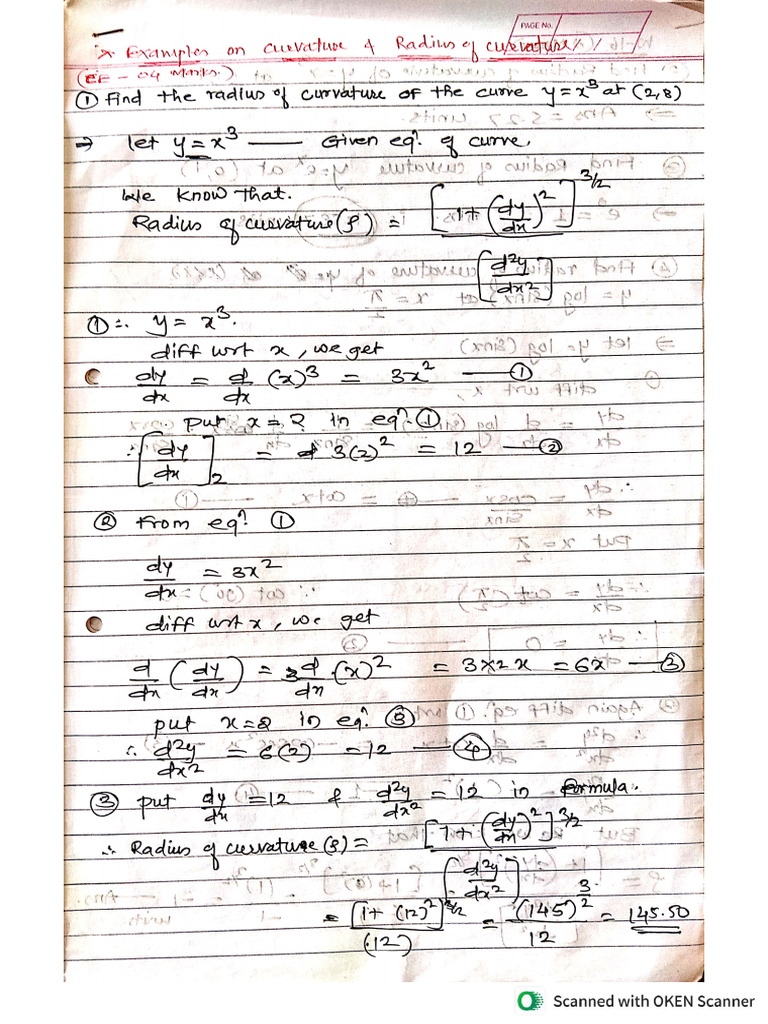 PAGE No.
* Examples on Curvature & Radius of curvature
(EE - 04 Marks.)
① Find the radius of curvature of the curve y=x³ at (2,8)
⇒ let y = x³ —— Given eqⁿ. of curve.
We know that.
Radius of curvature (ρ) = [1+(dy/dx)²]^3/2 / [d²y/dx²]
① ∴ y = x³.
diff wrt x, we get
dy/dx = d/dx (x)³ = 3x² —— ①
put x=2 in eqⁿ. ①
∴ [dy/dx]₂ = 3(2)² = 12 — ②
② From eqⁿ. ①
dy/dx = 3x²
diff wrt x, we get
d/dx (dy/dx) = 3d/dx (x)² = 3×2x = 6x — ③
put x=2 in eqⁿ. ③
∴ d²y/dx² = 6(2) = 12 — ④
③ put dy/dx = 12 & d²y/dx² = 12 in formula.
∴ Radius of curvature (ρ) = [1+(dy/dx)²]^3/2 / [d²y/dx²]
= [1+(12)²]^3/2 / (12) = (145)^3/2 / 12 = 145.50
Scanned with OKEN Scanner